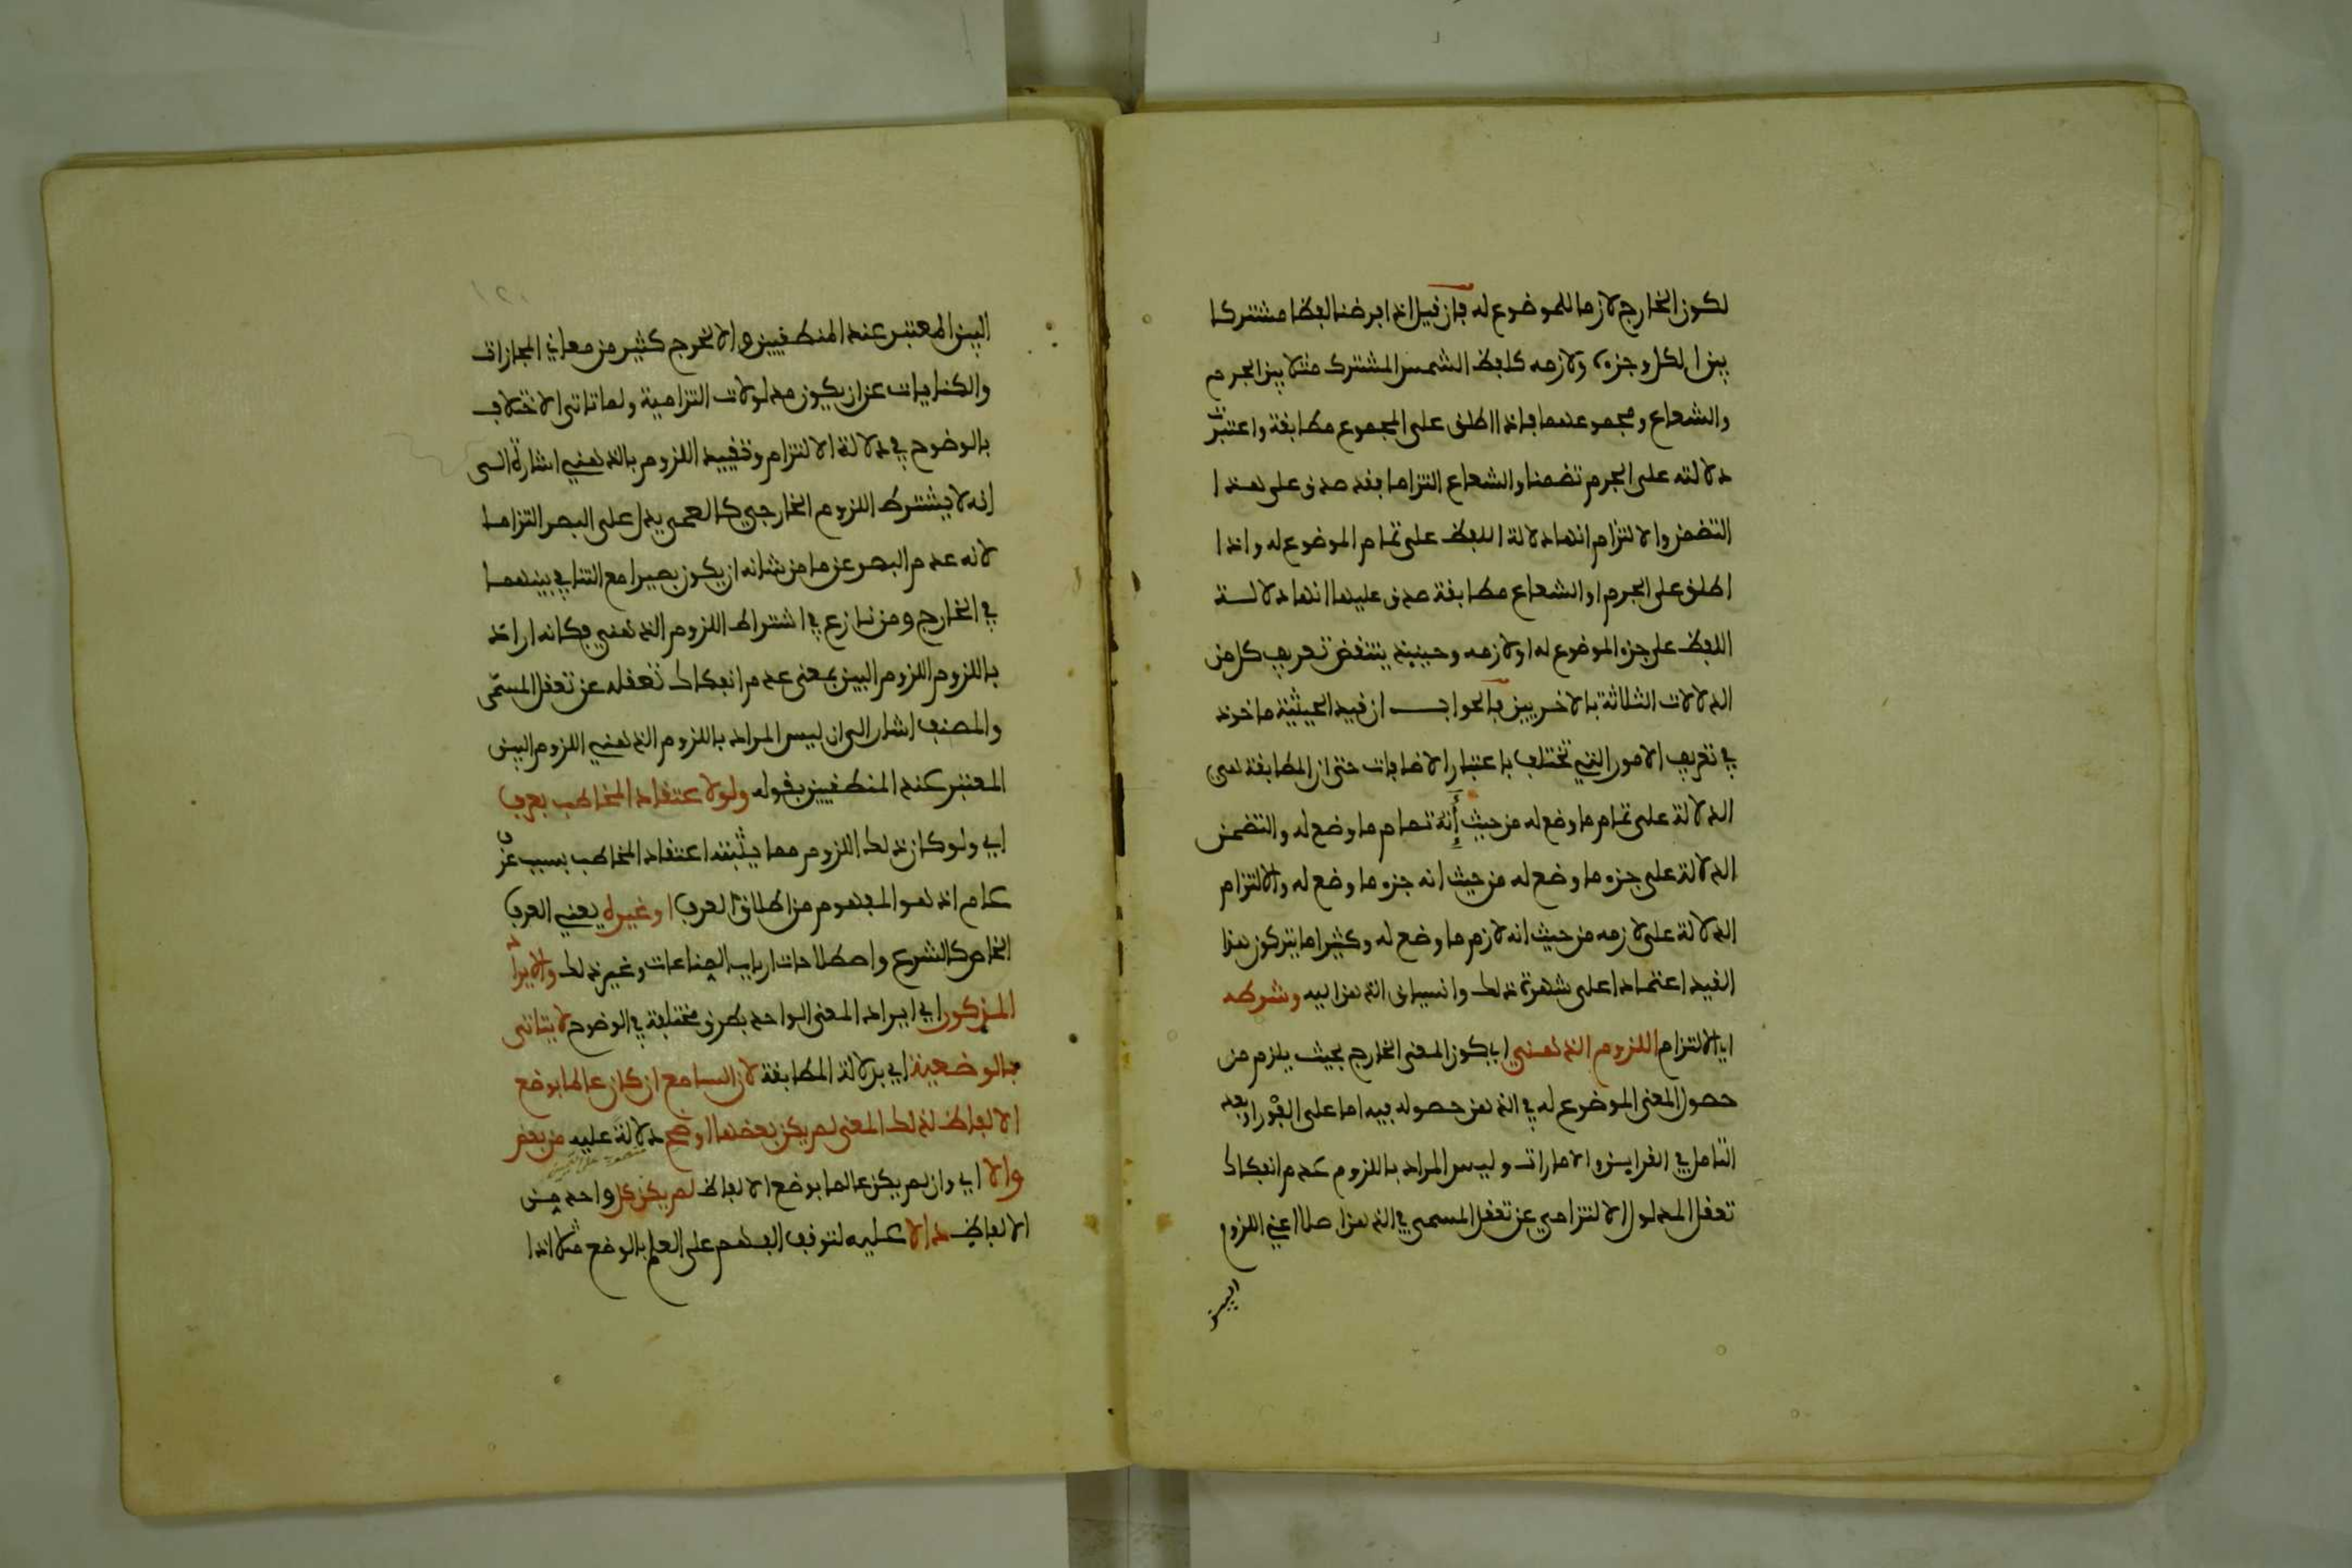 لكون الخارج لازما للموضوع له فان قيل اذا فرضنا لفظا مشتركا
بين الكل وجزءه ولازمه كلفظ الشمس المشترك مثلا بين الجرم
والشعاع ومجموعهما فاذا اطلق على المجموع مطابقة واعتبرت
دلالته على الجرم تضمنا والشعاع التزاما فقد صدق على هذا
التضمن والالتزام انها دلالة اللفظ على تمام الموضوع له واذا
اطلق على الجرم او الشعاع مطابقة صدق عليها انها دلالة
اللفظ على جزء الموضوع له او لازمه وحينيذ ينتقض تعريف كل من
الدلالات الثلاثة بالاخريين فالجواب ان قيد الحيثية ماخوذ
في تعريف الامور التي تختلف باعتبار الاضافات حتى ان المطابقة هي
الدلالة على تمام ما وضع له من حيث إنه تمام ما وضع له والتضمن
الدلالة على جزء ما وضع له من حيث انه جزء ما وضع له والالتزام
الدلالة على لازمه من حيث انه لازم ما وضع له وكثيرا ما يتركون هذا
القيد اعتمادا على شهرة ذلك وانسياق الذهن اليه وشرطه
اي الالتزام اللزوم الذهني اي كون المعنى الخارج بحيث يلزم من
حصول المعنى الموضوع له في الذهن حصوله فيه اما على الفور او بعد
التامل في القراين والامارات وليس المراد باللزوم عدم انفكاك
تعقل المدلول الالتزامي عن تعقل المسمى في الذهن اصلا اعني اللزوم
البين
البين المعتبر عند المنطقيين والا لخرج كثير من معاني المجازات
والكنايات عن ان يكون مدلولات التزامية ولما تاتى الاختلاف
بالوضوح في دلالة الالتزام وتقييد اللزوم بالذهني اشارة الى
انه لا يشترط اللزوم الخارجي كالعمى يدل على البصر التزاما
لانه عدم البصر عن ما من شانه ان يكون بصيرا مع التنافي بينهما
في الخارج ومن نازع في اشتراط اللزوم الذهني فكانه اراد
باللزوم اللزوم البين بمعنى عدم انفكاك تعقله عن تعقل المسمى
والمصنف اشار الى ان ليس المراد باللزوم الذهني اللزوم البين
المعتبر عند المنطقيين بقوله ولو لاعتقاد المخاطب بعرف
اي ولو كان ذلك اللزوم مما يثبته اعتقاد المخاطب بسبب عرف
عام اذ هو المفهوم من اطلاق العرف او غيره يعني العرف
الخاص كالشرع واصطلاحات ارباب الصناعات وغير ذلك والايراد
المذكور اي ايراد المعنى الواحد بطرق مختلفة في الوضوح لا يتاتى
بالوضعية اي بدلالة المطابقة لان السامع ان كان عالما بوضع
الالفاظ لذلك المعنى لم يكن بعضها اوضح دلالة عليه من بعض
والا اي وان لم يكن عالما بوضع الالفاظ لم يكن كل واحد من
الالفاظ دالا عليه لتوقف الفهم على العلم بالوضع مثلا اذا